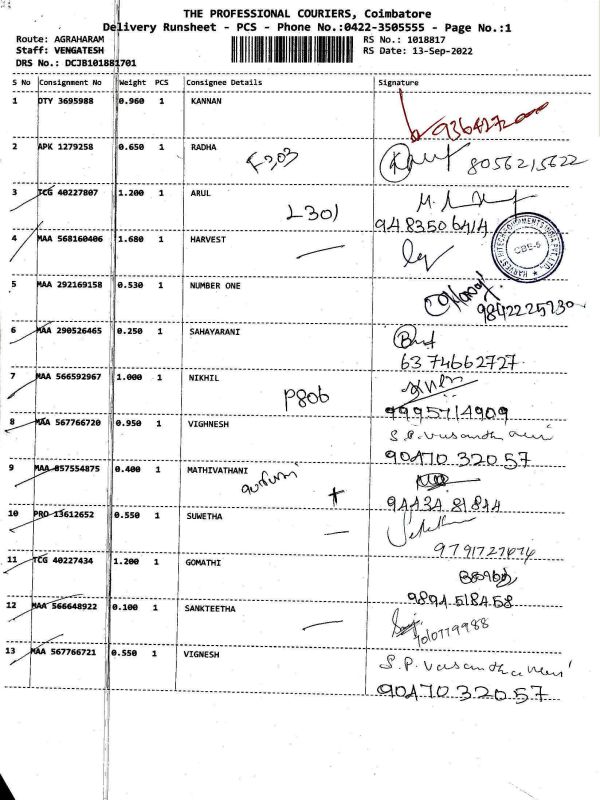 THE PROFESSIONAL COURIERS, Coimbatore
Delivery Runsheet - PCS - Phone No.:0422-3505555 - Page No.:1
Route: AGRAHARAM RS No.: 1018817
Staff: VENGATESH RS Date: 13-Sep-2022
DRS No.: DCJB101881701
S No Consignment No Weight PCS Consignee Details Signature
1 DTY 3695988 0.960 1 KANNAN
2 APK 1279258 0.650 1 RADHA
F203 8056215622
3 TCG 40227807 1.200 1 ARUL
L301 9483506414
4 MAA 568160406 1.680 1 HARVEST
CBE-5
5 MAA 292169158 0.530 1 NUMBER ONE
9842225730
6 MAA 290526465 0.250 1 SAHAYARANI
6374662727
7 MAA 566592967 1.000 1 NIKHIL
P806
9995714909
8 MAA 567766720 0.950 1 VIGHNESH
9047032057
9 MAA 857554875 0.400 1 MATHIVATHANI
9443481844
10 PRO 13612652 0.550 1 SUWETHA
11 TCG 40227434 1.200 1 GOMATHI
9894518458
12 MAA 566648922 0.100 1 SANKTEETHA
13 MAA 567766721 0.550 1 VIGNESH
9047032057